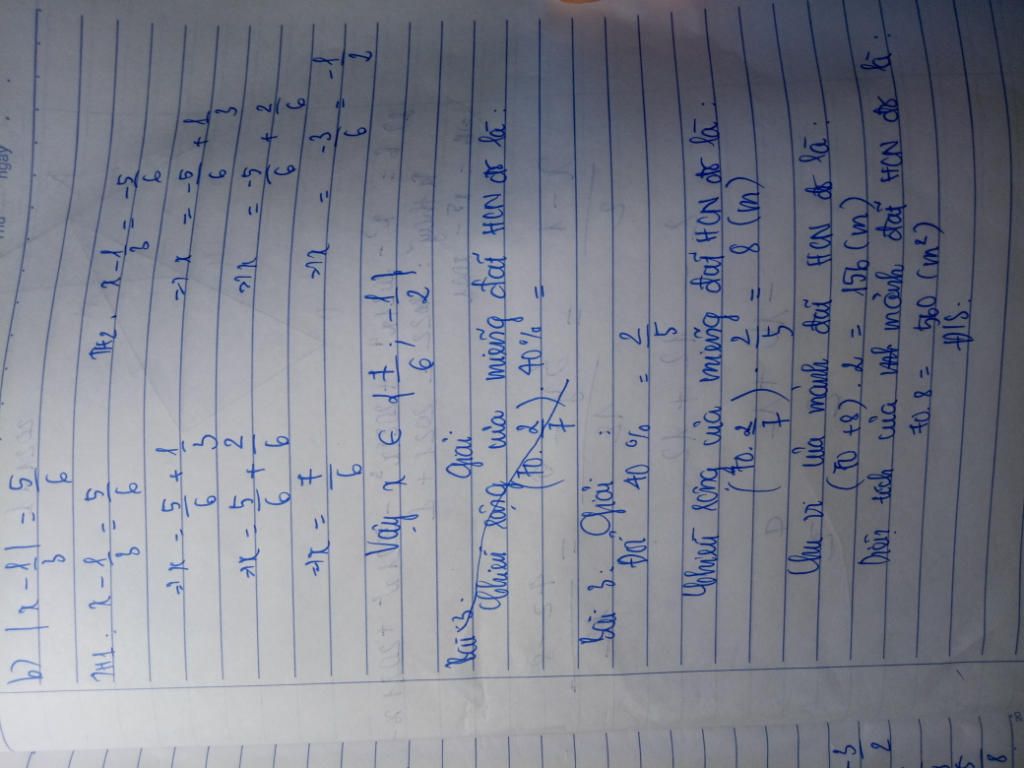 b) | x - 1/3 | = 5/6
TH1: x - 1/3 = 5/6
TH2: x - 1/3 = -5/6
=> x = 5/6 + 1/3
=> x = -5/6 + 1/3
=> x = 5/6 + 2/6
=> x = -5/6 + 2/6
=> x = 7/6
=> x = -3/6 = -1/2
Vậy x ∈ { 7/6 ; -1/2 }
Bài 3: Giải:
Chiều rộng của miếng đất HCN đó là:
(70 . 2/7) . 40% =
Bài 3: Giải:
Đổi 40% = 2/5
Chiều rộng của miếng đất HCN đó là:
(70 . 2/7) . 2/5 = 8 (m)
Chu vi của mảnh đất HCN đó là:
(70 + 8) . 2 = 156 (m)
Diện tích của mảnh đất HCN đó là:
70 . 8 = 560 (m²)
Đ/S.